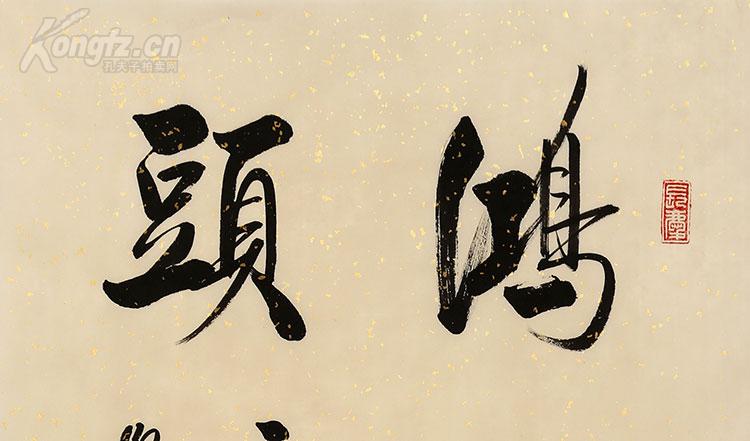 鴻頭
Kongfz.cn
孔夫子拍卖网